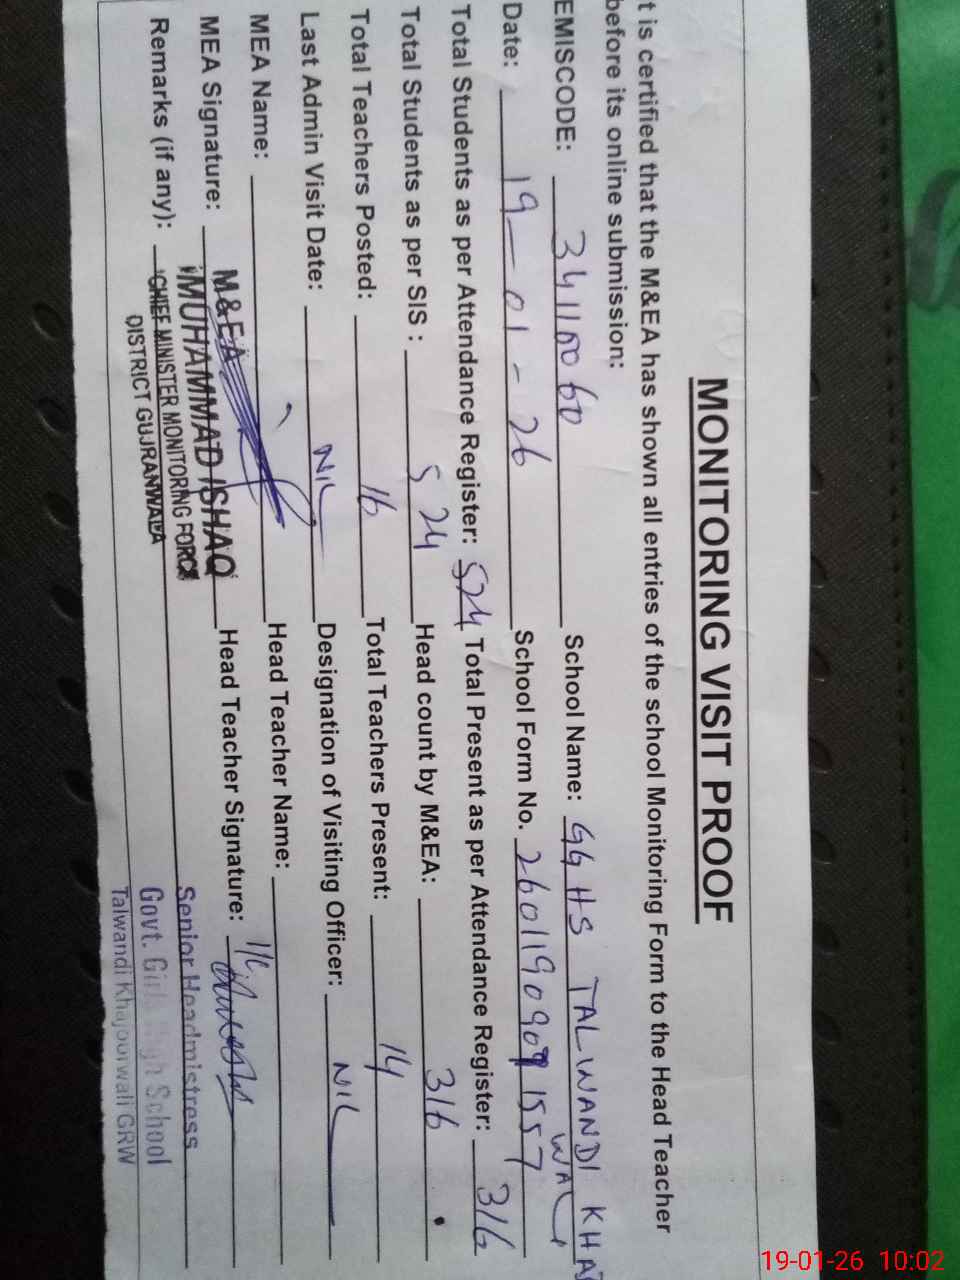 MONITORING VISIT PROOF
t is certified that the M&EA has shown all entries of the school Monitoring Form to the Head Teacher
before its online submission:
EMISCODE: 34110060 School Name: GGHS TALWANDI KHAJ
WALI
Date: 19-01-26 School Form No. 2601190909 1557
Total Students as per Attendance Register: 524 Total Present as per Attendance Register: 316
Total Students as per SIS : 524 Head count by M&EA: 316
Total Teachers Posted: 16 Total Teachers Present: 14
Last Admin Visit Date: NIL Designation of Visiting Officer: NIL
MEA Name: Head Teacher Name:
MEA Signature: M&EA Head Teacher Signature: I/C
MUHAMMAD ISHAQ
Remarks (if any): CHIEF MINISTER MONITORING FORCE
DISTRICT GUJRANWALA
Senior Headmistress
Govt. Girls High School
Talwandi Khajoorwali GRW
19-01-26 10:02